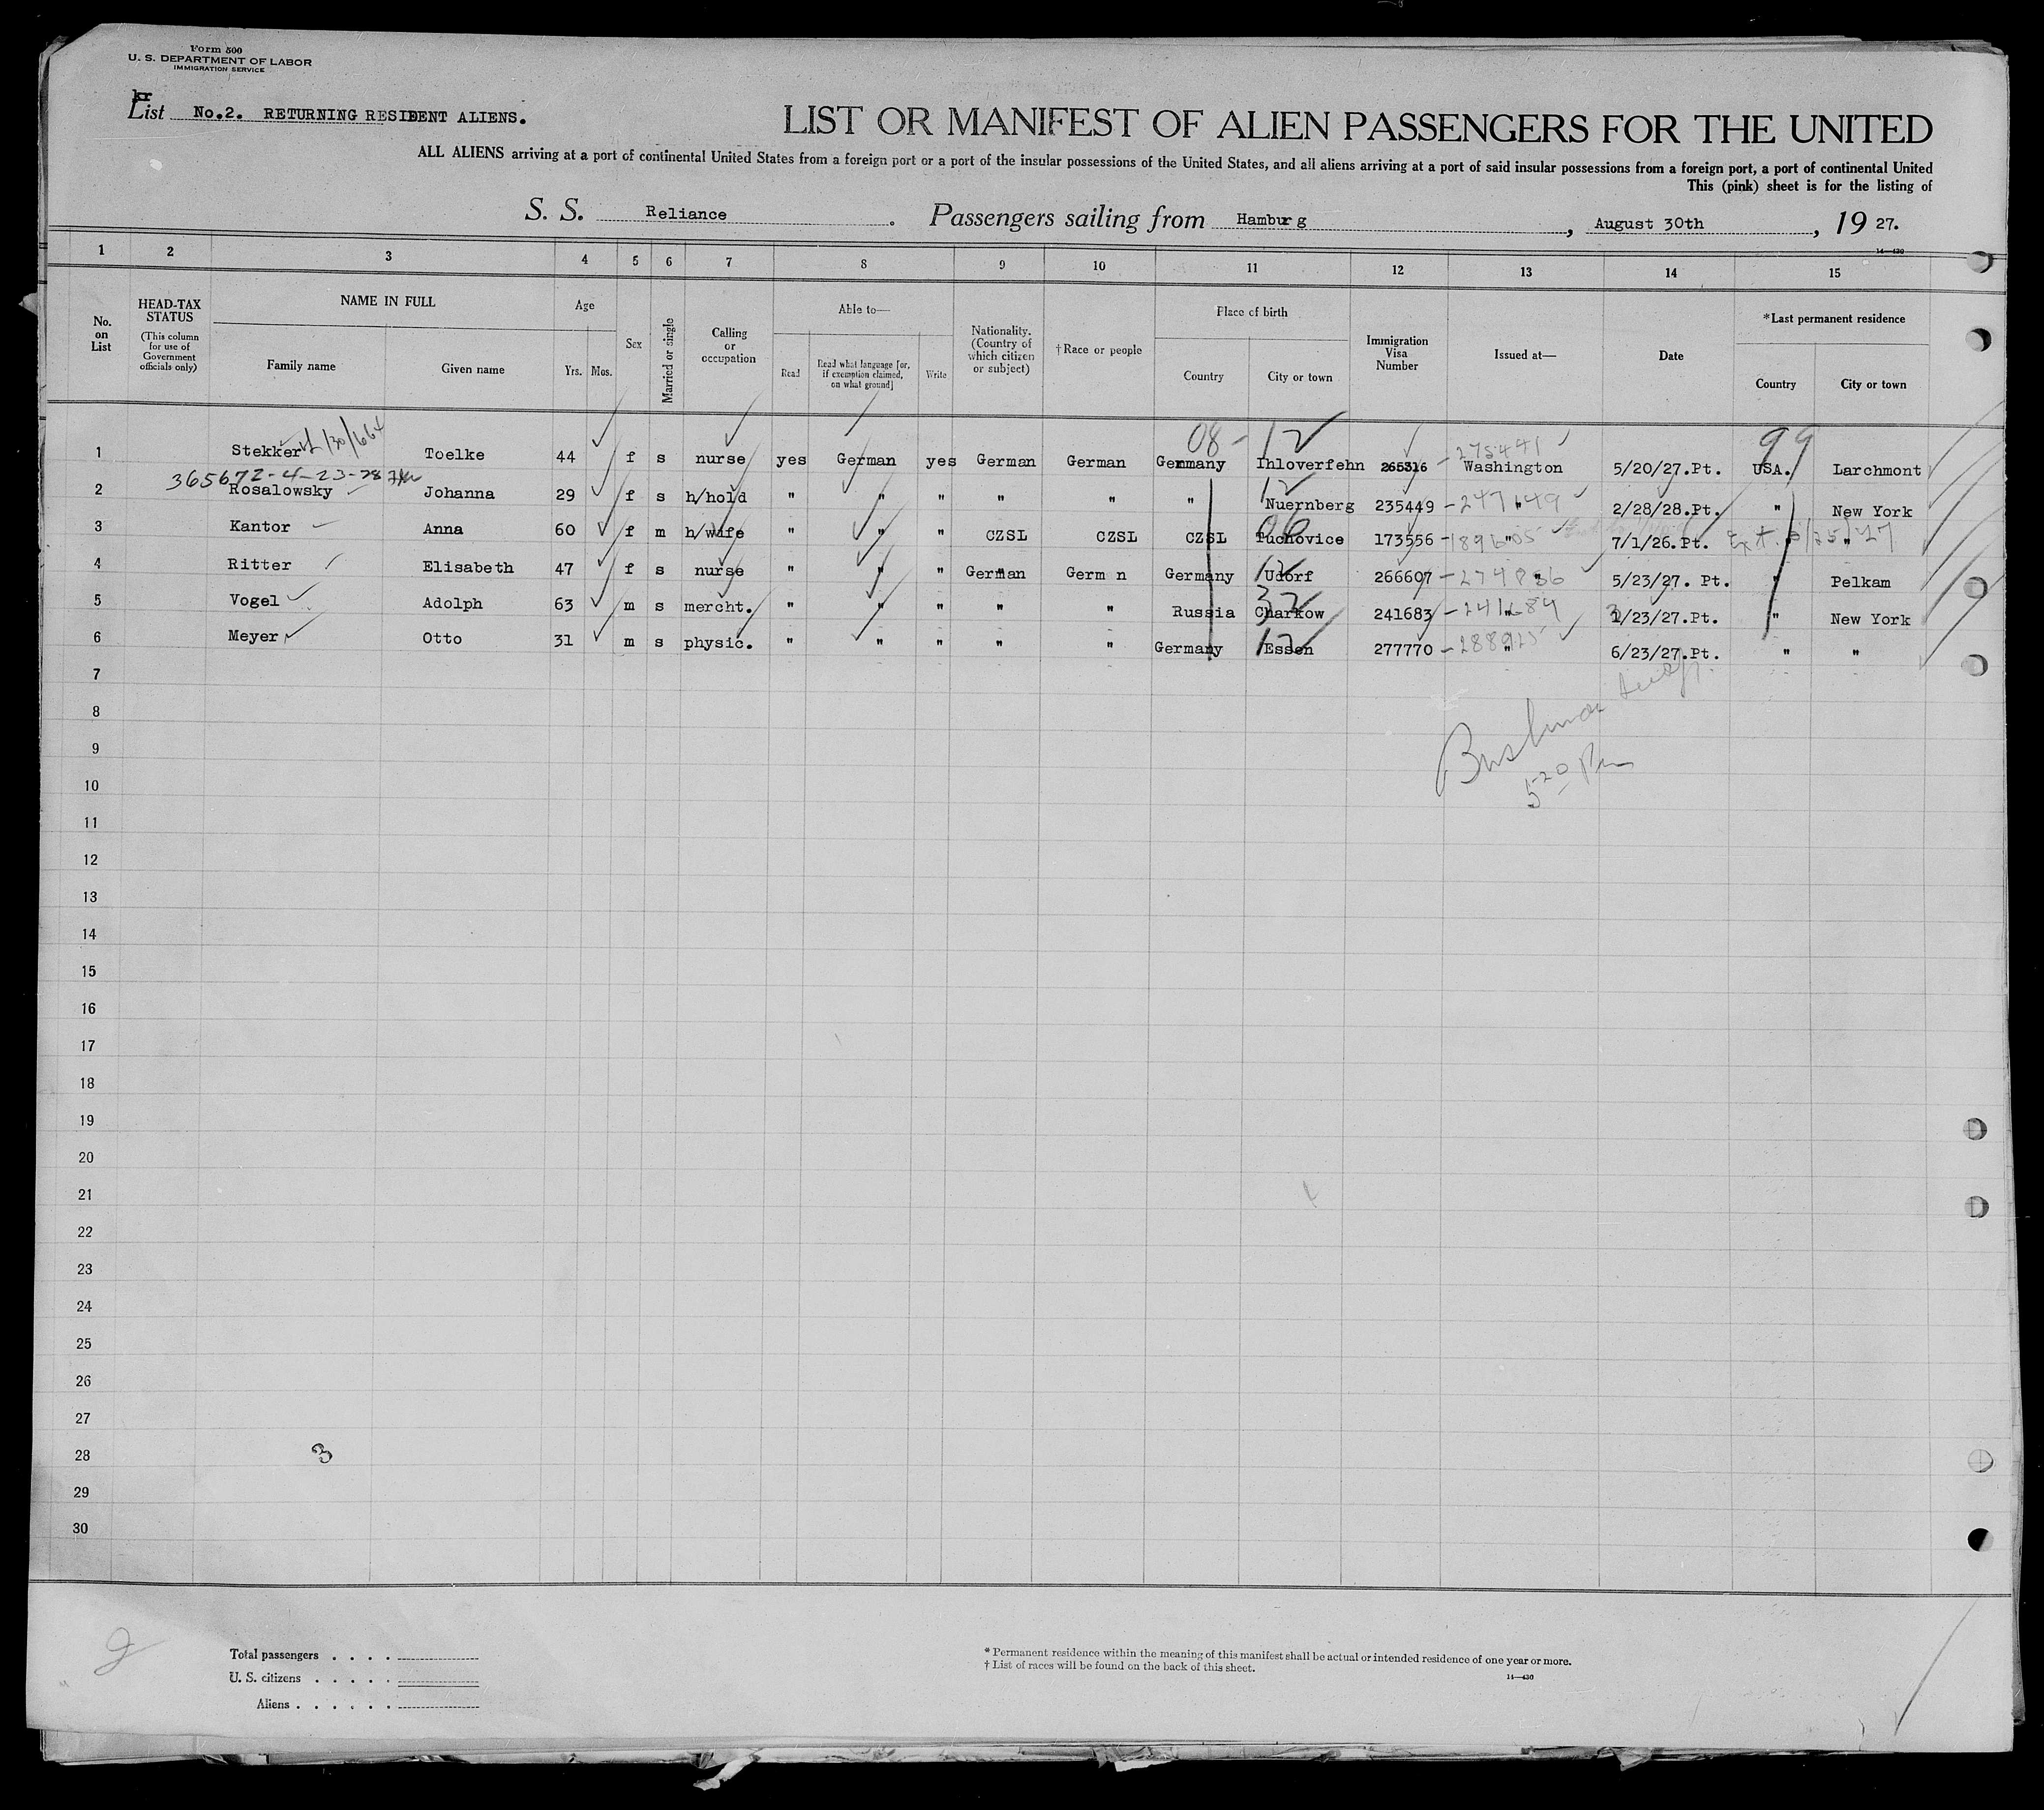 Form 500
U. S. DEPARTMENT OF LABOR
IMMIGRATION SERVICE
kr
List No.2. RETURNING RESIDENT ALIENS.
LIST OR MANIFEST OF ALIEN PASSENGERS FOR THE UNITED
ALL ALIENS arriving at a port of continental United States from a foreign port or a port of the insular possessions of the United States, and all aliens arriving at a port of said insular possessions from a foreign port, a port of continental United
This (pink) sheet is for the listing of
S. S. Reliance. Passengers sailing from Hamburg, August 30th, 19 27.
14—430
1 2 3 4 5 6 7 8 9 10 11 12 13 14 15
No. on List
HEAD-TAX STATUS (This column for use of Government officials only)
NAME IN FULL
Family name Given name
Age
Yrs. Mos.
Sex
Married or single
Calling or occupation
Able to—
Read Read what language [or, if exemption claimed, on what ground] Write
Nationality. (Country of which citizen or subject)
†Race or people
Place of birth
Country City or town
Immigration Visa Number
Issued at—
Date
*Last permanent residence
Country City or town
08- 12 275441 99
1 Stekker Toelke 44 f s nurse yes German yes German German Germany Ihloverfehn 265316 Washington 5/20/27.Pt. USA. Larchmont
365672-4-23-28
2 Rosalowsky Johanna 29 f s h/hold " " " " " " 12 Nuernberg 235449 -247149 " 2/28/28.Pt. " New York
3 Kantor Anna 60 f m h/wife " " " CZSL CZSL CZSL 06 Tuchovice 173556 -189605 " 7/1/26.Pt. " "
4 Ritter Elisabeth 47 f s nurse " " " German Germ n Germany 12 Udorf 266607 -274886 " 5/23/27. Pt. " Pelkam
5 Vogel Adolph 63 m s mercht. " " " " " Russia 32 Charkow 241683 -241684 " 2/23/27.Pt. " New York
6 Meyer Otto 31 m s physic. " " " " " Germany 12 Essen 277770 -288925 " 6/23/27.Pt. " "
7
8
9
10
5 20 Pm
11
12
13
14
15
16
17
18
19
20
21
22
23
24
25
26
27
28
3
29
30
2
Total passengers . . . .
U. S. citizens . . . . .
Aliens . . . . . .
* Permanent residence within the meaning of this manifest shall be actual or intended residence of one year or more.
† List of races will be found on the back of this sheet.
14—430